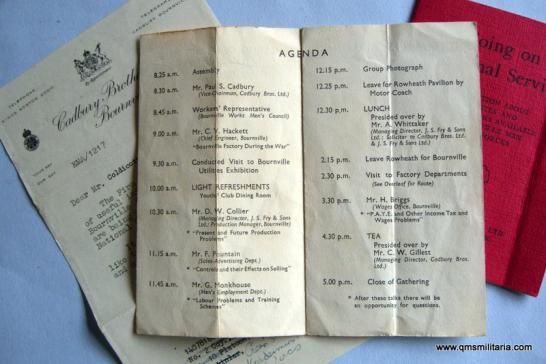 TELEPHONE
KINGS NORTON
TELEGRAMS
CADBURY BOURNVILLE
Cadbury Brothers
Bournville
YOUR REF
OUR REF
KMA/1217
Dear Mr. Coldicott
The Firm
of useful
Bournville
are bein
National
AGENDA
8.25 a.m. Assembly
8.30 a.m. Mr. Paul S. Cadbury
(Vice-Chairman, Cadbury Bros. Ltd.)
8.45 a.m. Workers' Representative
(Bournville Works Men's Council)
9.00 a.m. Mr. C. Y. Hackett
(Chief Engineer, Bournville)
"Bournville Factory During the War"
9.30 a.m. Conducted Visit to Bournville
Utilities Exhibition
10.00 a.m. LIGHT REFRESHMENTS
Youths' Club Dining Room
10.30 a.m. Mr. D. W. Collier
(Managing Director, J. S. Fry & Sons
Ltd.; Production Manager, Bournville)
* "Present and Future Production
Problems"
11.15 a.m. Mr. F. Fountain
(Sales-Advertising Dept.)
* "Controls and their Effects on Selling"
11.45 a.m. Mr. G. Monkhouse
(Men's Employment Dept.)
* "Labour Problems and Training
Schemes"
12.15 p.m. Group Photograph
12.25 p.m. Leave for Rowheath Pavilion by
Motor Coach
12.30 p.m. LUNCH
Presided over by
Mr. A. Whittaker
(Managing Director, J. S. Fry & Sons
Ltd.; Solicitor to Cadbury Bros. Ltd.
& J. S. Fry & Sons Ltd.)
2.15 p.m. Leave Rowheath for Bournville
2.30 p.m. Visit to Factory Departments
(See Overleaf for Route)
3.30 p.m. Mr. H. Briggs
(Wages Office, Bournville)
* "P.A.Y.E. and Other Income Tax and
Wages Problems"
4.30 p.m. TEA
Presided over by
Mr. C. W. Gillett
(Managing Director, Cadbury Bros.
Ltd.)
5.00 p.m. Close of Gathering
* After these talks there will be
an opportunity for questions.
oing on
nal Servi
www.qmsmilitaria.com